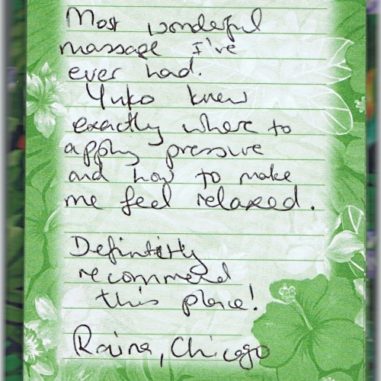 Most wonderful
massage I've
ever had.
Yuko knew
exactly where to
apply pressure
and how to make
me feel relaxed.
Definitely
recommend
this place!
Raina, Chicago